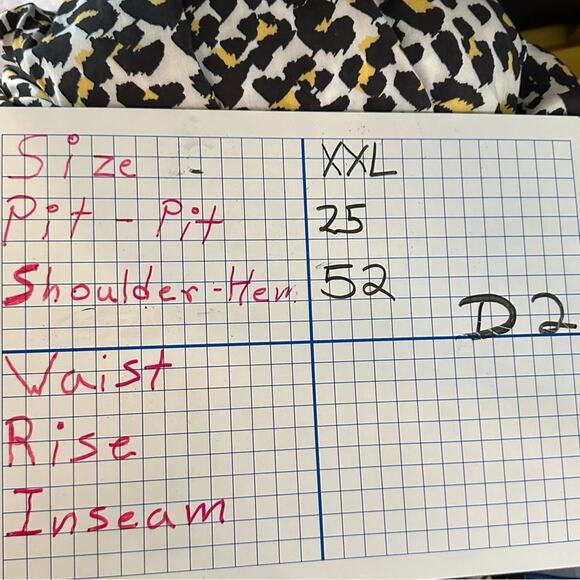 Size - XXL
Pit - Pit 25
Shoulder-Hem 52
D2
Waist
Rise
Inseam